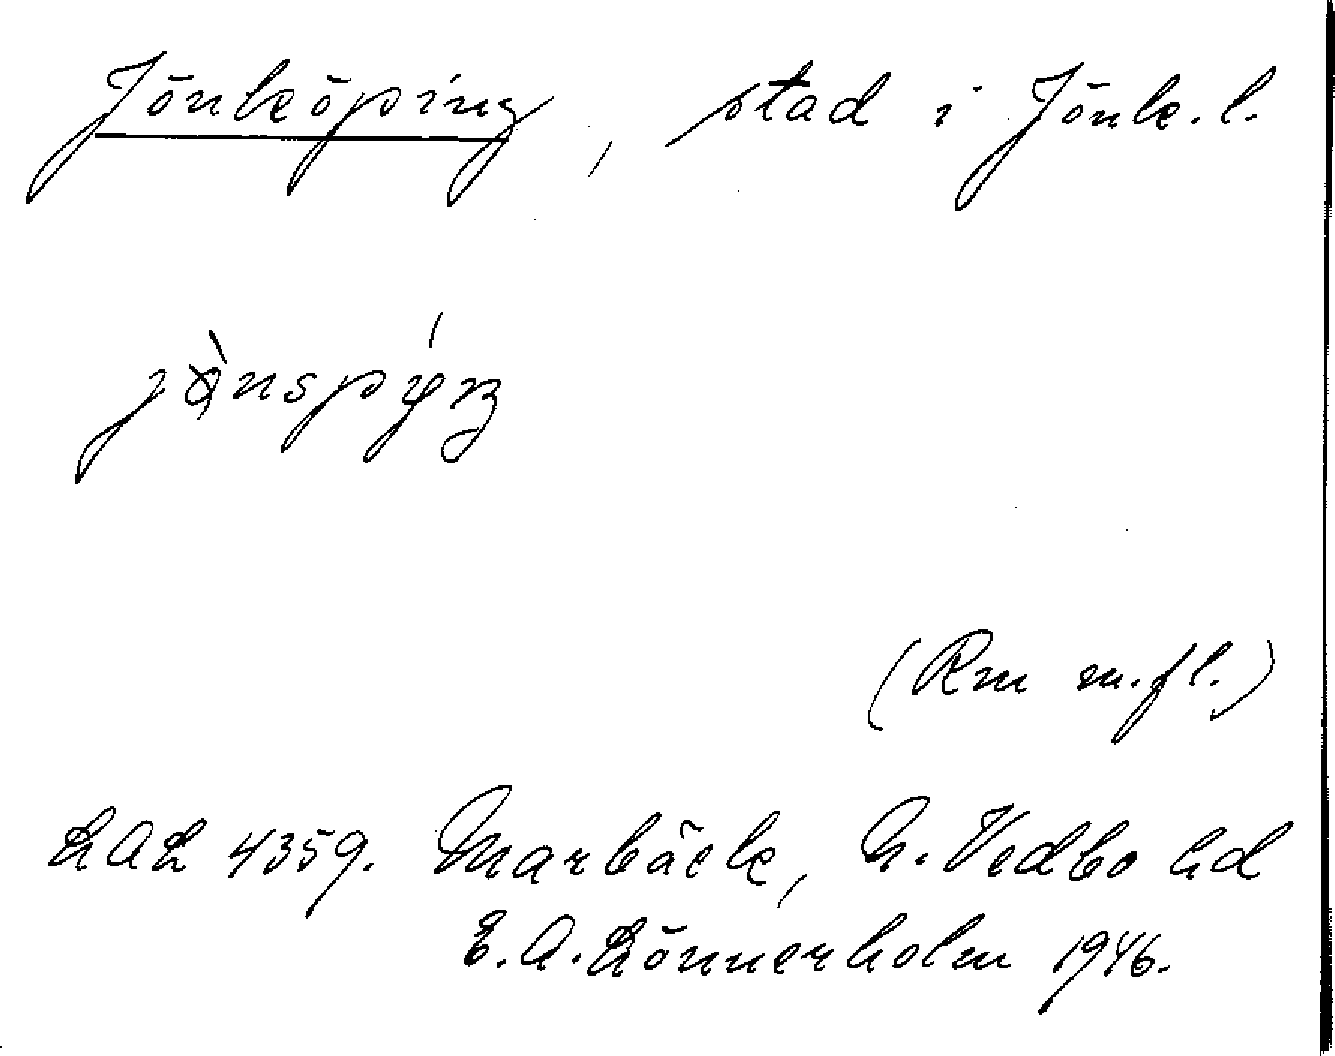 Jönköping, stad i Jönk.l.
(Rm m.fl.)
LAL 4359. Marbäck, N. Vedbo hd
E. A. Lönnerholm 1946.